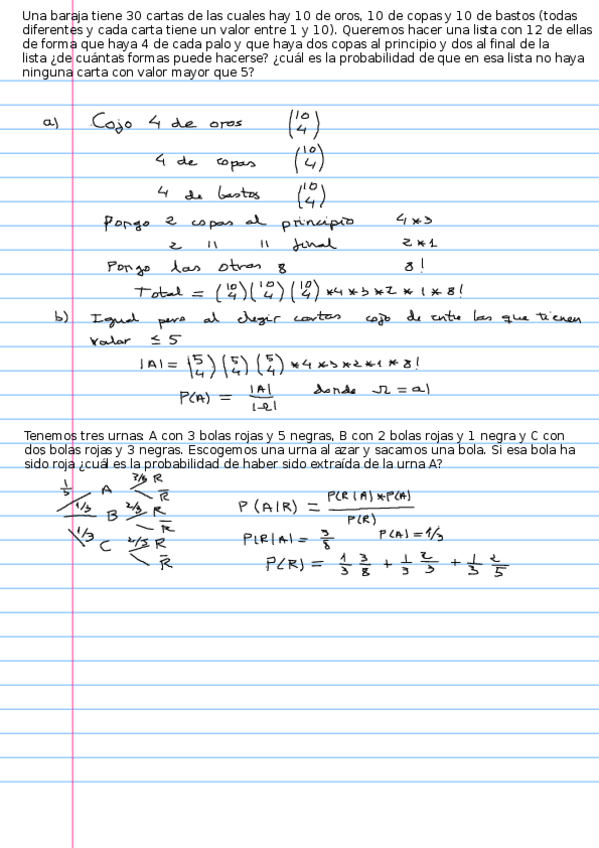 Una baraja tiene 30 cartas de las cuales hay 10 de oros, 10 de copas y 10 de bastos (todas
diferentes y cada carta tiene un valor entre 1 y 10). Queremos hacer una lista con 12 de ellas
de forma que haya 4 de cada palo y que haya dos copas al principio y dos al final de la
lista ¿de cuántas formas puede hacerse? ¿cuál es la probabilidad de que en esa lista no haya
ninguna carta con valor mayor que 5?
a) Cojo 4 de oros (10 4)
4 de copas (10 4)
4 de bastos (10 4)
Pongo 2 copas al principio 4*3
2 " " final 2*1
Pongo las otras 8 8!
Total = (10 4)(10 4)(10 4)*4*3*2*1*8!
b) Igual pero al elegir cartas cojo de entre las que tienen
valor ≤ 5
|A| = (5 4)(5 4)(5 4)*4*3*2*1*8!
P(A) = |A|/|Ω| donde Ω = a)
Tenemos tres urnas: A con 3 bolas rojas y 5 negras, B con 2 bolas rojas y 1 negra y C con
dos bolas rojas y 3 negras. Escogemos una urna al azar y sacamos una bola. Si esa bola ha
sido roja ¿cuál es la probabilidad de haber sido extraída de la urna A?
1/3 A 3/8 R
R̅
1/3 B 2/3 R
R̅
1/3 C 2/5 R
R̅
P(A|R) = P(R|A)*P(A)/P(R)
P(R|A) = 3/8 P(A)=1/3
P(R) = 1/3 3/8 + 1/3 2/3 + 1/3 2/5